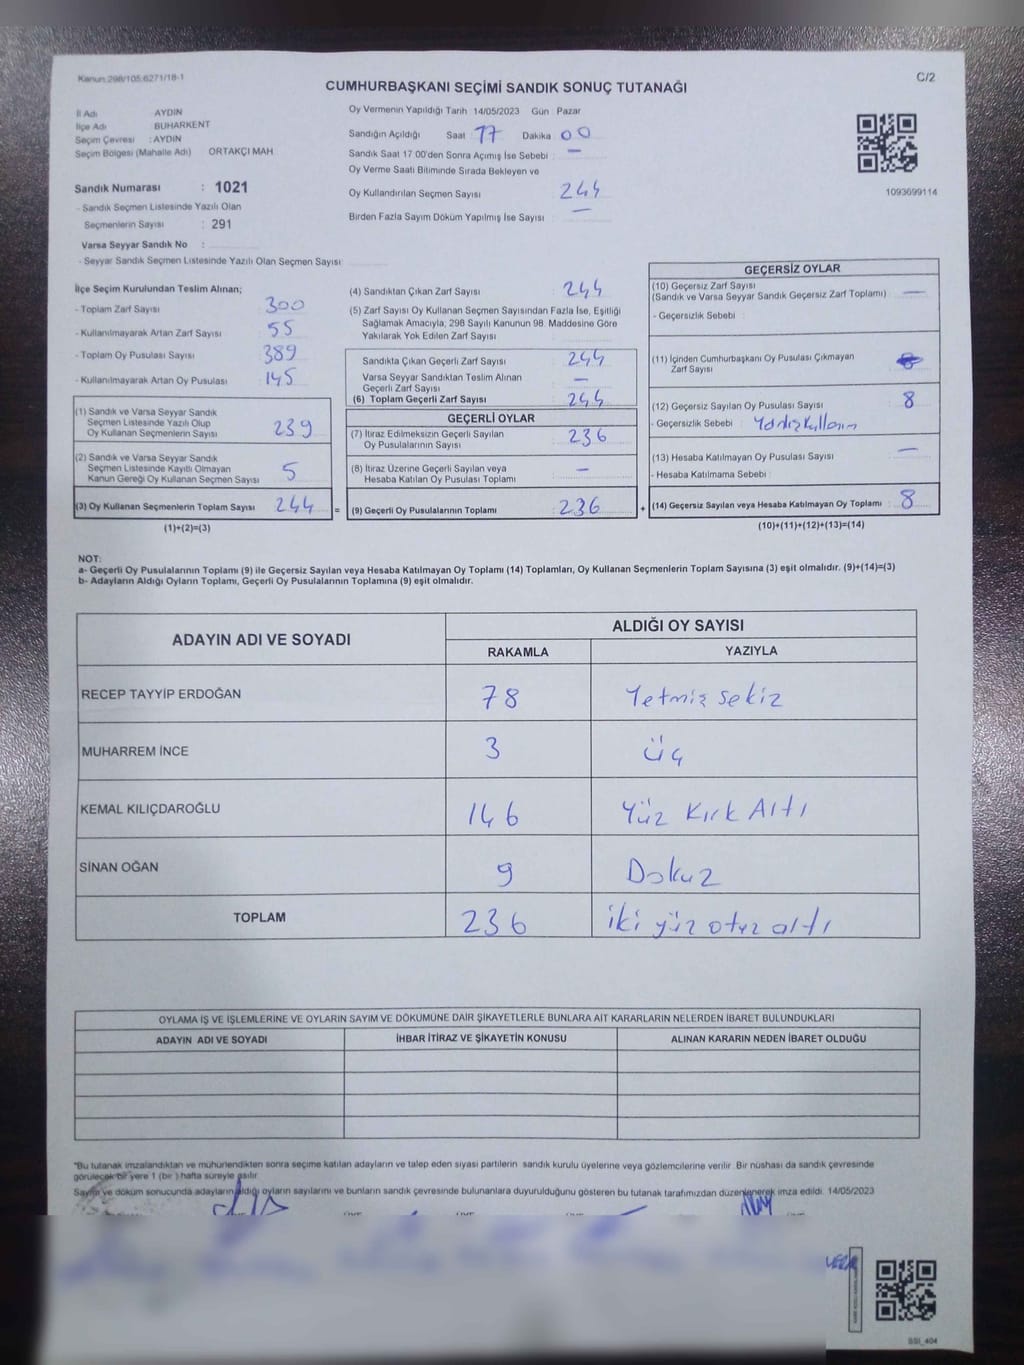 Kanun:298/105:6271/18-1
C/2
CUMHURBAŞKANI SEÇİMİ SANDIK SONUÇ TUTANAĞI
İl Adı AYDIN
İlçe Adı BUHARKENT
Seçim Çevresi : AYDIN
Seçim Bölgesi (Mahalle Adı) ORTAKÇI MAH
Sandık Numarası : 1021
- Sandık Seçmen Listesinde Yazılı Olan
Seçmenlerin Sayısı : 291
Varsa Seyyar Sandık No :
- Seyyar Sandık Seçmen Listesinde Yazılı Olan Seçmen Sayısı:
Oy Vermenin Yapıldığı Tarih 14/05/2023 Gün Pazar
Sandığın Açıldığı Saat 17 Dakika 00
Sandık Saat 17 00'den Sonra Açımış İse Sebebi : —
Oy Verme Saati Bitiminde Sırada Bekleyen ve
Oy Kullandırılan Seçmen Sayısı 244
Birden Fazla Sayım Döküm Yapılmış İse Sayısı —
1093699114
İlçe Seçim Kurulundan Teslim Alınan;
- Toplam Zarf Sayısı 300
- Kullanılmayarak Artan Zarf Sayısı 55
- Toplam Oy Pusulası Sayısı 389
- Kullanılmayarak Artan Oy Pusulası 145
(1) Sandık ve Varsa Seyyar Sandık
Seçmen Listesinde Yazılı Olup
Oy Kullanan Seçmenlerin Sayısı 239
(2) Sandık ve Varsa Seyyar Sandık
Seçmen Listesinde Kayıtlı Olmayan
Kanun Gereği Oy Kullanan Seçmen Sayısı 5
(3) Oy Kullanan Seçmenlerin Toplam Sayısı 244 =
(1)+(2)=(3)
(4) Sandıktan Çıkan Zarf Sayısı 244
(5) Zarf Sayısı Oy Kullanan Seçmen Sayısından Fazla İse, Eşitliği
Sağlamak Amacıyla, 298 Sayılı Kanunun 98. Maddesine Göre
Yakılarak Yok Edilen Zarf Sayısı
Sandıkta Çıkan Geçerli Zarf Sayısı 244
Varsa Seyyar Sandıktan Teslim Alınan
Geçerli Zarf Sayısı —
(6) Toplam Geçerli Zarf Sayısı 244
GEÇERLİ OYLAR
(7) İtiraz Edilmeksizin Geçerli Sayılan
Oy Pusulalarının Sayısı 236
(8) İtiraz Üzerine Geçerli Sayılan veya
Hesaba Katılan Oy Pusulası Toplamı —
(9) Geçerli Oy Pusulalarının Toplamı 236 +
GEÇERSİZ OYLAR
(10) Geçersiz Zarf Sayısı
(Sandık ve Varsa Seyyar Sandık Geçersiz Zarf Toplamı) —
- Geçersizlik Sebebi :
(11) İçinden Cumhurbaşkanı Oy Pusulası Çıkmayan
Zarf Sayısı
(12) Geçersiz Sayılan Oy Pusulası Sayısı 8
- Geçersizlik Sebebi :
(13) Hesaba Katılmayan Oy Pusulası Sayısı —
- Hesaba Katılmama Sebebi :
(14) Geçersiz Sayılan veya Hesaba Katılmayan Oy Toplamı 8
(10)+(11)+(12)+(13)=(14)
NOT:
a- Geçerli Oy Pusulalarının Toplamı (9) ile Geçersiz Sayılan veya Hesaba Katılmayan Oy Toplamı (14) Toplamları, Oy Kullanan Seçmenlerin Toplam Sayısına (3) eşit olmalıdır. (9)+(14)=(3)
b- Adayların Aldığı Oyların Toplamı, Geçerli Oy Pusulalarının Toplamına (9) eşit olmalıdır.
ADAYIN ADI VE SOYADI
ALDIĞI OY SAYISI
RAKAMLA YAZIYLA
RECEP TAYYİP ERDOĞAN 78 Yetmiş sekiz
MUHARREM İNCE 3 üç
KEMAL KILIÇDAROĞLU 146 Yüz Kırk Altı
SİNAN OĞAN 9 Dokuz
TOPLAM 236 iki yüz otuz altı
OYLAMA İŞ VE İŞLEMLERİNE VE OYLARIN SAYIM VE DÖKÜMÜNE DAİR ŞİKAYETLERLE BUNLARA AİT KARARLARIN NELERDEN İBARET BULUNDUKLARI
ADAYIN ADI VE SOYADI İHBAR İTİRAZ VE ŞİKAYETİN KONUSU ALINAN KARARIN NEDEN İBARET OLDUĞU
*Bu tutanak imzalandıktan ve mühürlendikten sonra seçime katılan adayların ve talep eden siyasi partilerin sandık kurulu üyelerine veya gözlemcilerine verilir. Bir nüshası da sandık çevresinde
görülecek bir yere 1 (bir ) hafta süreyle asılır.
Sayım ve döküm sonucunda adayların aldığı oyların sayılarını ve bunların sandık çevresinde bulunanlara duyurulduğunu gösteren bu tutanak tarafımızdan düzenlenerek imza edildi. 14/05/2023
SSI_404